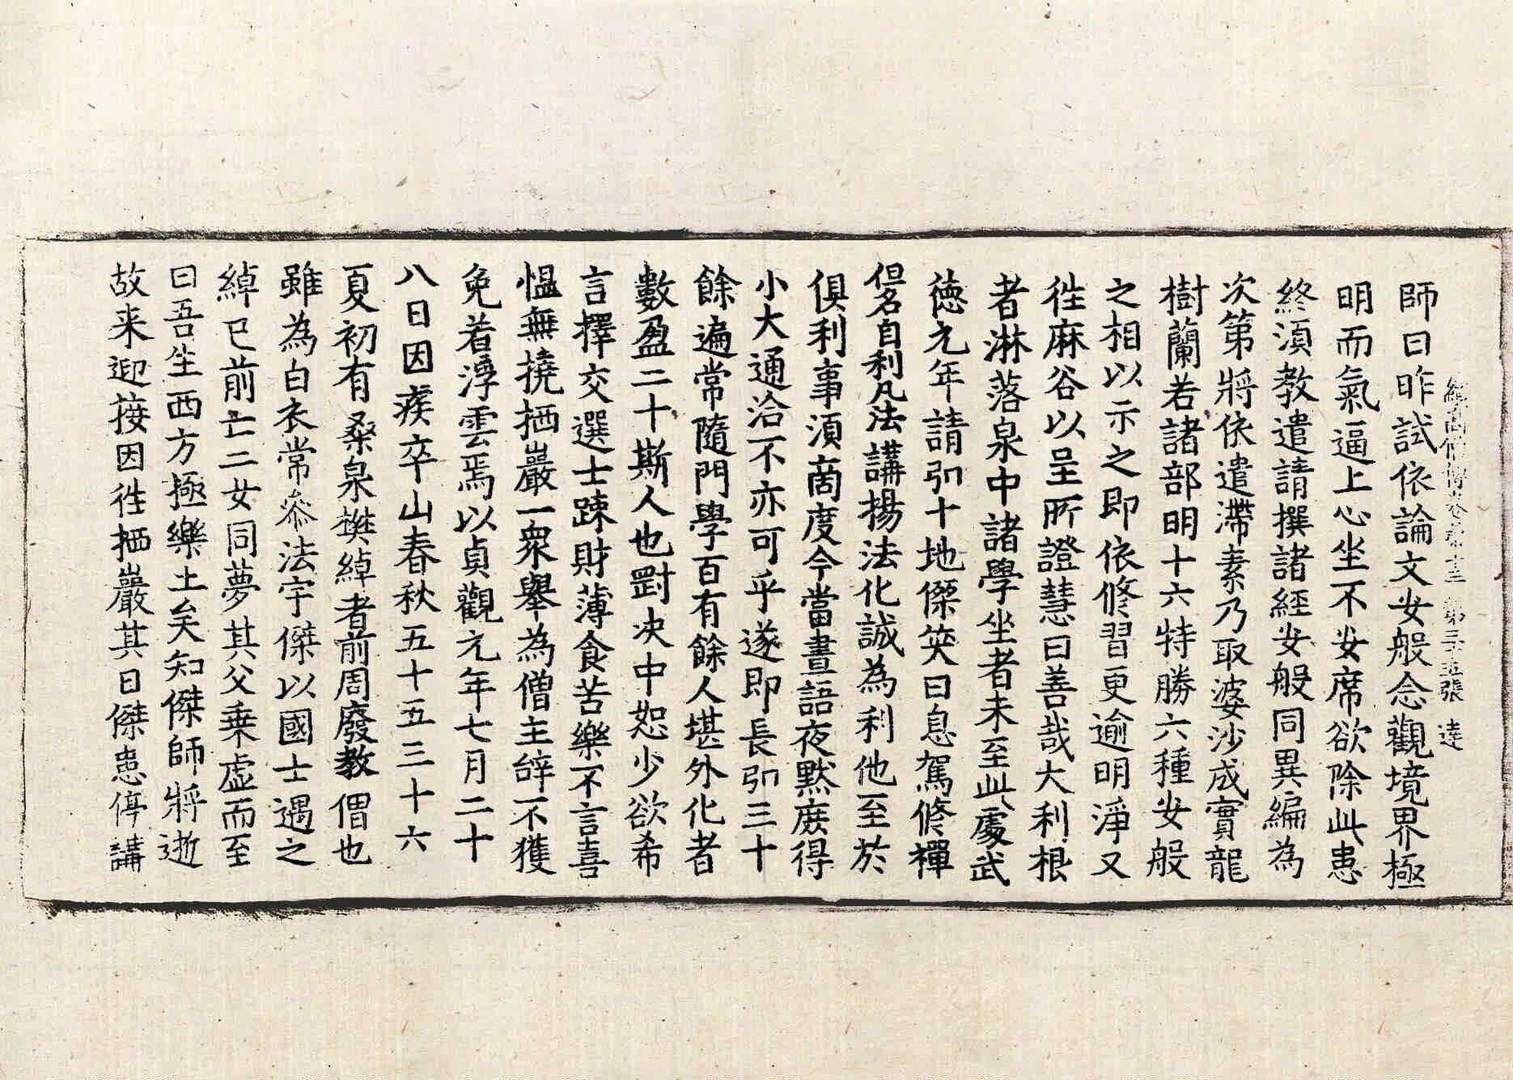 續高僧傳卷第十三 第三十五張 達
師曰昨試依論文安般念觀境界極
明而氣逼上心坐不安席欲除此患
終須教遣請撰諸經安般同異編為
次第將依遣滯素乃取婆沙成實龍
樹蘭若諸部明十六特勝六種安般
之相以示之即依修習更逾明淨又
往麻谷以呈所證慧曰善哉大利根
者淋落泉中諸學坐者未至此處武
德元年請引十地傑笑曰息駕修禪
但名自利凡法講揚法化誠為利他至於
俱利事須啇度今當晝語夜默庶得
小大通洽不亦可乎遂即長引三十
餘遍常隨門學百有餘人堪外化者
數盈二十斯人也剛决中恕少欲希
言擇交選士踈財薄食苦樂不言喜
慍無撓栖巖一衆舉為僧主辝不獲
免着浮雲焉以貞觀元年七月二十
八日因疾卒山春秋五十五三十六
夏初有桑泉樊綽者前周廢教僧也
雖為白衣常叅法宇傑以國士遇之
綽已前亡二女同夢其父乗虛而至
曰吾生西方極樂土矣知傑師將逝
故来迎接因往栖巖其日傑患停講